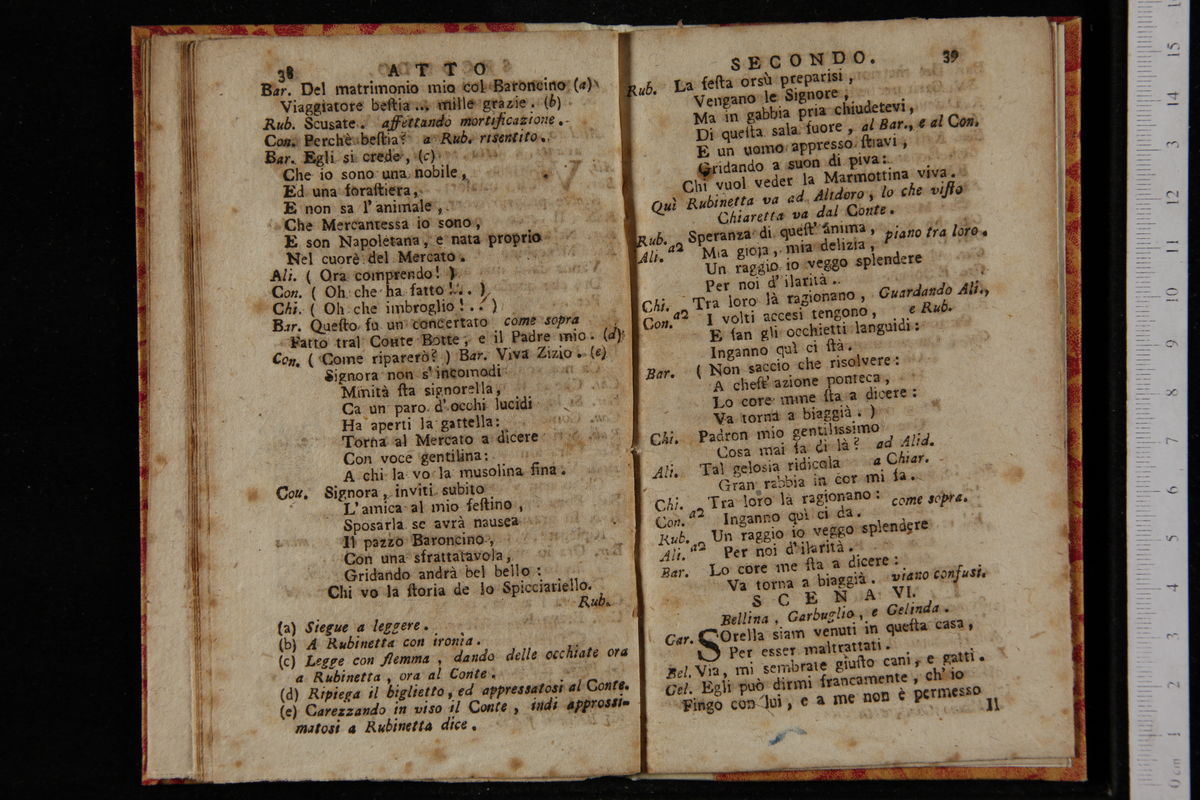 38
ATTO
Bar. Del matrimonio mio col Baroncino (a)
Viaggiatore beſtia ... mille grazie. (b)
Rub. Scusate. affettando mortificazione.
Con. Perchè beſtia? a Rub. risentito.
Bar. Egli si crede, (c)
Che io sono una nobile,
Ed una foraſtiera,
E non sa l'animale,
Che Mercantessa io sono,
E son Napoletana, e nata proprio
Nel cuorè del Mercato.
Ali. ( Ora comprendo! )
Con. ( Oh che ha fatto!... )
Chi. ( Oh che imbroglio!... )
Bar. Queſto fu un concertato come sopra
Fatto tral Conte Botte, e il Padre mio. (d)
Con. ( Come riparerò? ) Bar. Viva Zizio. (e)
Signora non s'incomodi
Minità ſta signorella,
Ca un paro d'occhi lucidi
Ha aperti la gattella:
Torna al Mercato a dicere
Con voce gentilina:
A chi la vo la musolina fina.
Cou. Signora, inviti subito
L'amica al mio feſtino,
Sposarla se avrà nausea
Il pazzo Baroncino,
Con una sfrattatavola,
Gridando andrà bel bello:
Chi vo la ſtoria de lo Spicciariello.
Rub.
(a) Siegue a leggere.
(b) A Rubinetta con ironia.
(c) Legge con flemma, dando delle occhiate ora
a Rubinetta, ora al Conte.
(d) Ripiega il biglietto, ed appressatosi al Conte.
(e) Carezzando in viso il Conte, indi approssi-
matosi a Rubinetta dice.
SECONDO.
39
Rub. La feſta orsù preparisi,
Vengano le Signore,
Ma in gabbia pria chiudetevi,
Di queſta sala fuore, al Bar., e al Con.
E un uomo appresso ſtiavi,
Gridando a suon di piva:
Chi vuol veder la Marmottina viva.
Quì Rubinetta va ad Alidoro, lo che viſto
Chiaretta va dal Conte.
Rub. Speranza di queſt' anima, piano tra loro.
Ali. a2 Mia gioja, mia delizia,
Un raggio io veggo splendere
Per noi d'ilarità.
Chi. Tra loro là ragionano, Guardando Ali.,
Con. a2 I volti accesi tengono, e Rub.
E fan gli occhietti languidi:
Inganno quì ci ſtà.
Bar. ( Non saccio che risolvere:
A cheſt' azione ponteca,
Lo core mme ſta a dicere:
Va torna a biaggià. )
Chi. Padron mio gentilissimo
Cosa mai fa di là? ad Alid.
Ali. Tal gelosia ridicola a Chiar.
Gran rabbia in cor mi fa.
Chi. Tra loro là ragionano: come sopra.
Con. a2 Inganno quì ci da.
Rub. Un raggio io veggo splendere
Ali. a2 Per noi d'ilarità.
Bar. Lo core me ſta a dicere:
Va torna a biaggià. viano confusi.
SCENA VI.
Bellina, Garbuglio, e Gelinda.
Gar. SOrella siam venuti in queſta casa,
Per esser maltrattati.
Bel. Via, mi sembrate giuſto cani, e gatti.
Gel. Egli può dirmi francamente, ch'io
Fingo con lui, e a me non è permesso
Il
15
14
13
12
11
10
9
8
7
6
5
4
3
2
1
0 cm